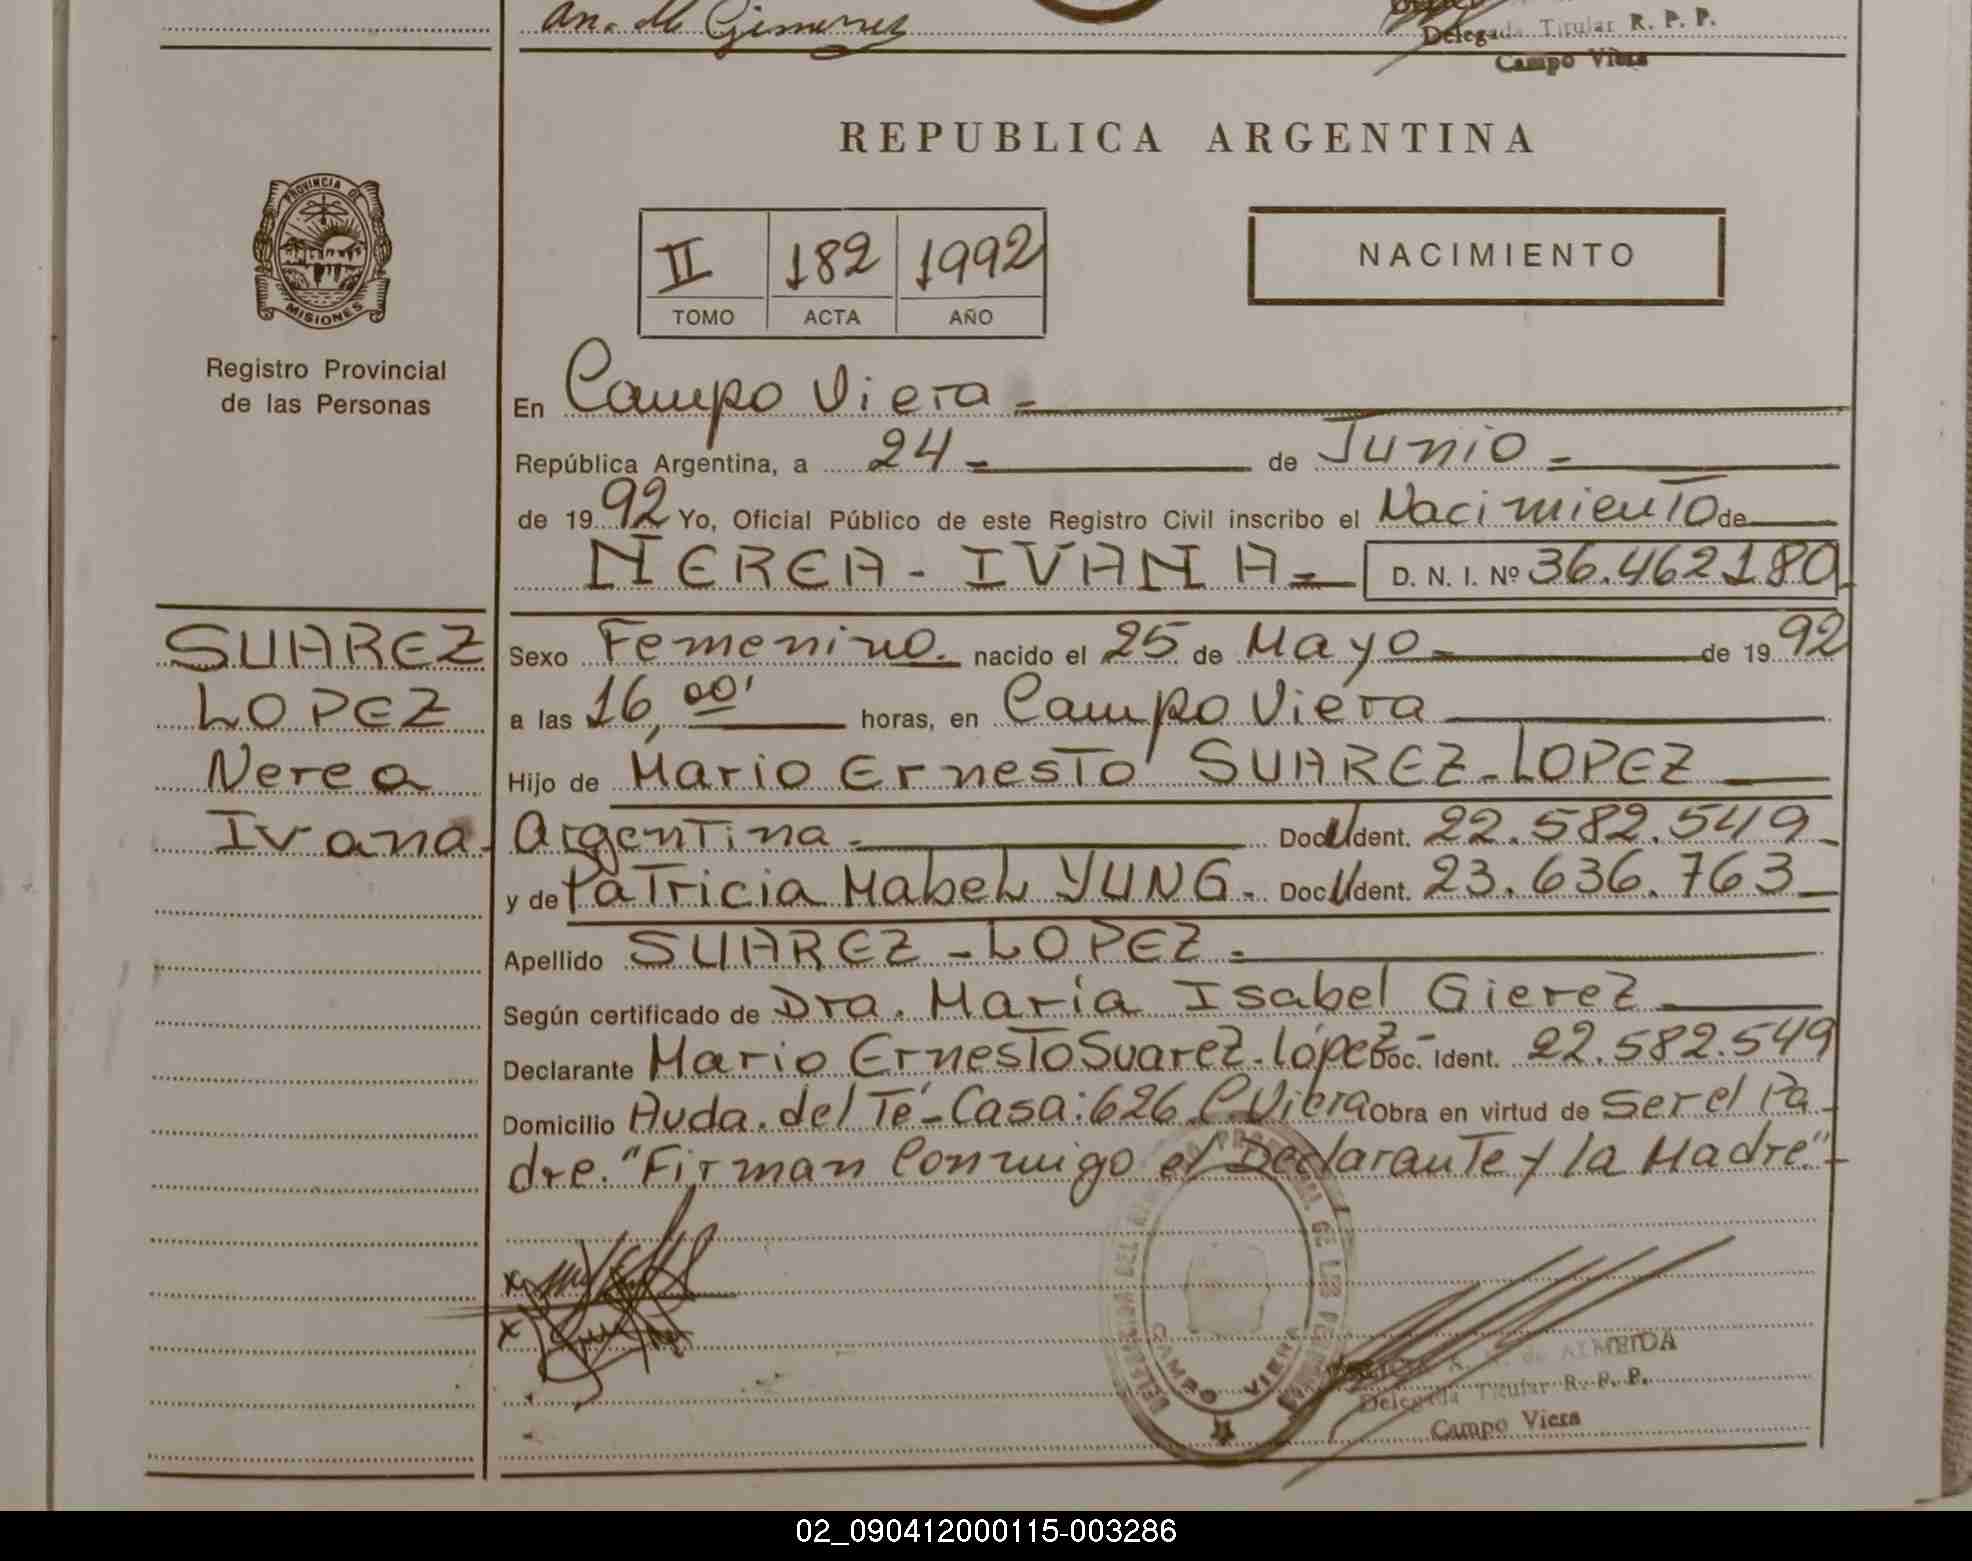 Gimenez
Delegada Titular R. P. P.
Campo Viera
REPUBLICA ARGENTINA
PROVINCIA DE
MISIONES
Registro Provincial
de las Personas
II 182 1992
TOMO ACTA AÑO
NACIMIENTO
En Campo Viera -
República Argentina, a 24 - de Junio -
de 1992 Yo, Oficial Público de este Registro Civil inscribo el Nacimiento de
NEREA - IVANA - D. N. I. Nº 36.462180
SUAREZ
LOPEZ
Nerea
Ivana
Sexo Femenino. nacido el 25 de Mayo - de 1992
a las 16,00' horas, en Campo Viera
Hijo de Mario Ernesto SUAREZ-LOPEZ
Argentina - Doc. Ident. 22.582.549 -
y de Patricia Mabel YUNG - Doc. Ident. 23.636.763
Apellido SUAREZ - LOPEZ -
Según certificado de Dra. María Isabel Gierez
Declarante Mario Ernesto Suarez-López - Doc. Ident. 22.582.549
Domicilio Avda. del Té - Casa: 626 C. Viera Obra en virtud de Ser el Pa-
dre. "Firman Conmigo el Declarante y la Madre" -
CAMPO VIERA
de ALMEIDA
Delegada Titular R. P. P.
Campo Viera
02_090412000115-003286